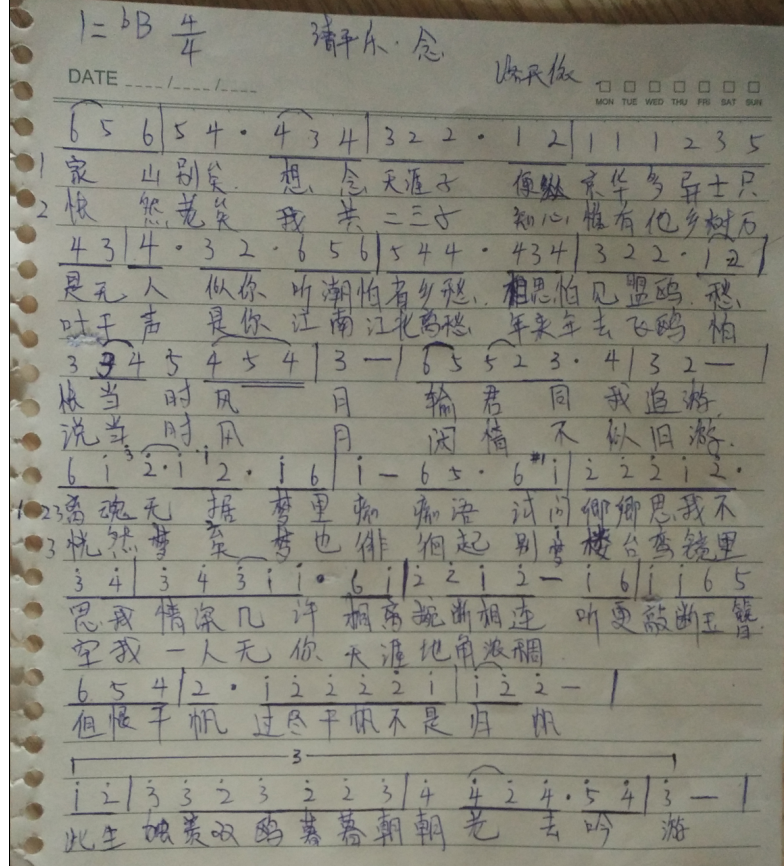 1=bB 4/4 清平乐·念
DATE ----/----/----
MON TUE WED THU FRI SAT SUN
6 5 6|5 4 · 4 3 4|3 2 2 · 1 2|1 1 1 2 3 5
1 家 山别矣 想 念 天涯子 便 京华多异士只
2 怅 然老矣 我 共 二三子 知心惟有他乡树万
4 3|4 · 3 2 · 6 5 6|5 4 4 · 4 3 4|3 2 2 · 1 2|
是无人 似你 听潮怕省乡愁 相思怕见盟鸥 愁
叶千声 是你 江南江北离愁 年来年去飞鸥 怕
3 3 4 5 4 5 4|3 —|6 5 5 2 3 · 4|3 2 —|
怅当 时风 月 输君 同 我追游
说当 时风 月 闲情 不 似旧游
6 i 3 2·i i 2 · i 6|i — 6 5 · 6 #1 i|2 2 2 i 2 ·
离魂无 据 梦里痴 痴语 试问卿卿思我不
3 恍然梦 矣 梦也徘 徊起 别 楼台鸾镜里
3 4|3 4 3 i i · 6 i|2 2 i 2 — i 6|i i 6 5
思我情深几 许 相 断相连 听更敲断玉
空我一人无你 天涯地角浓稠
6 5 4|2 · i 2 2 2 2 i|i 2 2 —|
但恨千帆 过尽千帆不是归 帆
3
i 2|3 3 2 3 2 2 3|4 4 2 4 · 5 4|3 —|
此生 独羡双鸥暮暮朝朝老 去吟 游